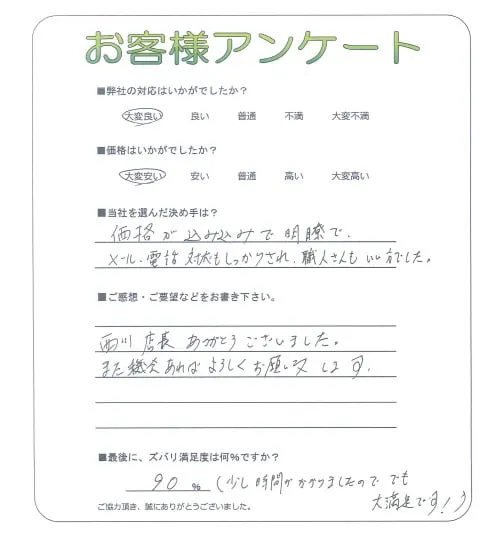 お客様アンケート
■弊社の対応はいかがでしたか？
大変良い 良い 普通 不満 大変不満
■価格はいかがでしたか？
大変安い 安い 普通 高い 大変高い
■当社を選んだ決め手は？
価格が込み込みで明瞭で、
メール・電話対応もしっかりされ、職人さんもいい方でした。
■ご感想・ご要望などをお書き下さい。
西川店長ありがとうございました。
また機会あればよろしくお願い致します。
■最後に、ズバリ満足度は何%ですか？
90 % (少し時間がかかりましたので でも
大満足です！)
ご協力頂き、誠にありがとうございました。